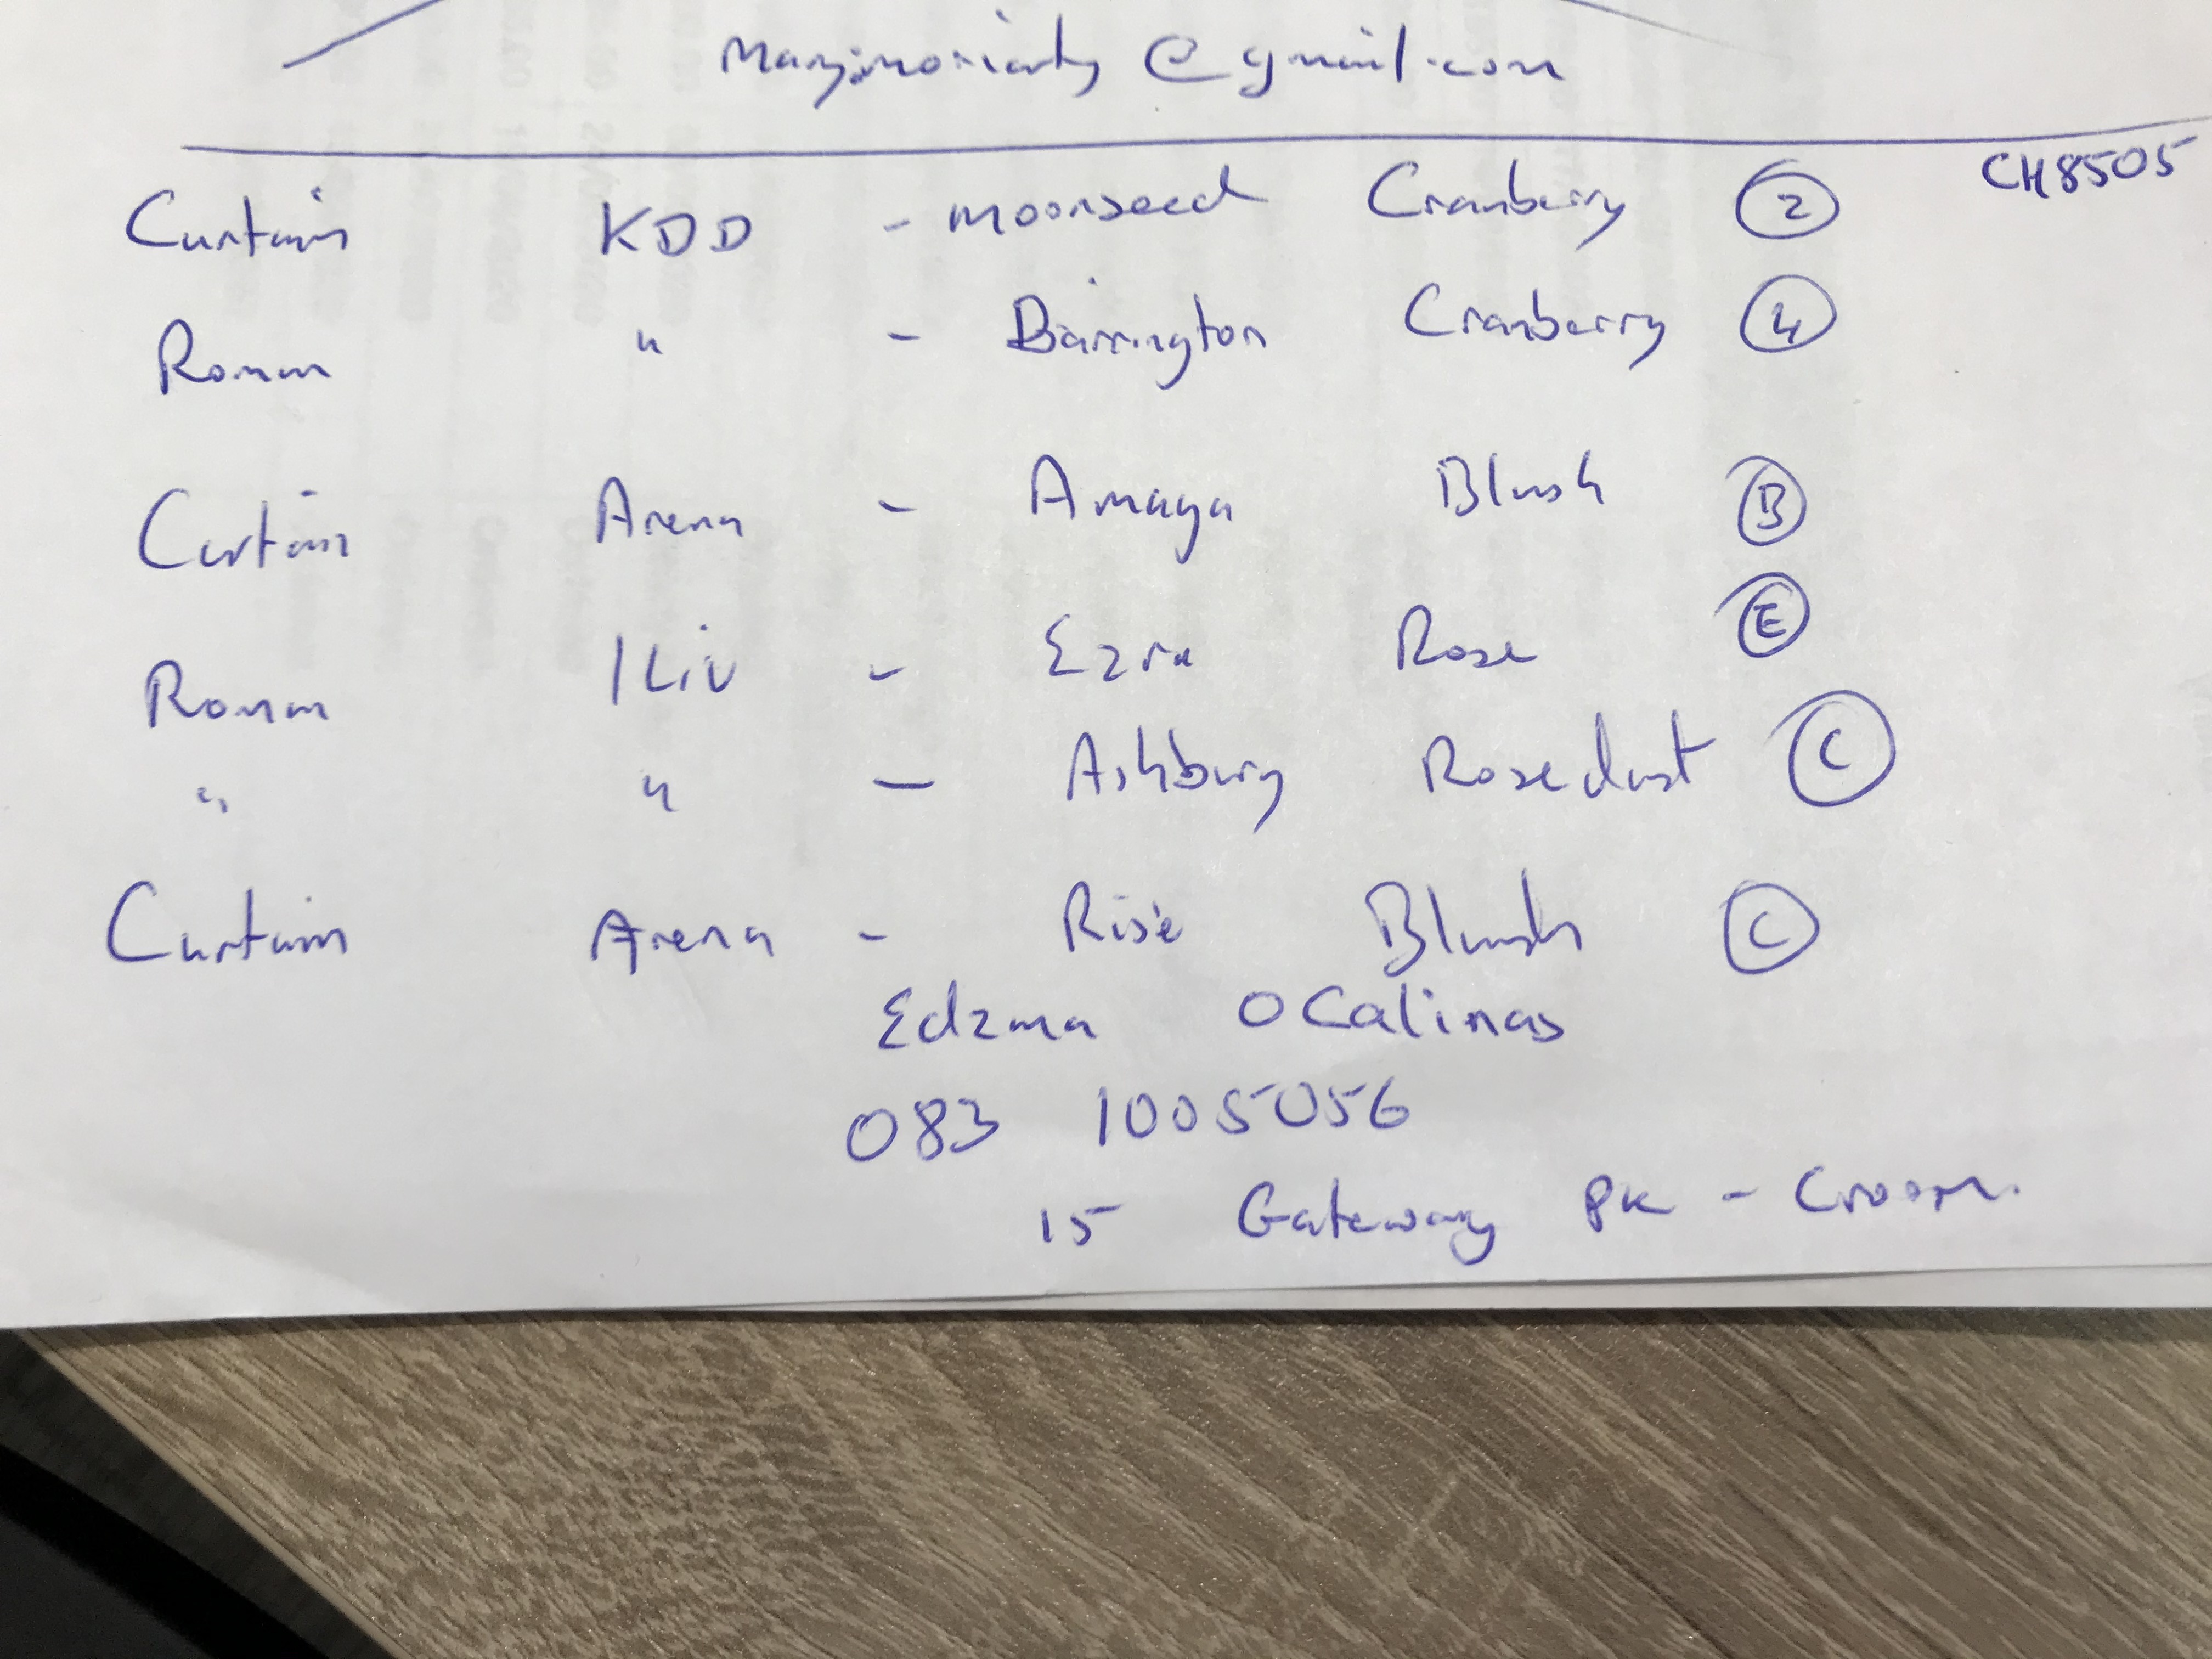 Maryjmoriarty @ gmail.com
CH8505
Curtain KDD - moonseed Cranberry 2
Roman " - Barrington Cranberry 4
Curtain Arena - Amaya Blush B
Roman Iliv - Ezra Rose E
" " - Ashbury Rosedust C
Curtain Arena - Rise Blush C
Edzma OCalinas
083 1005056
15 Gateway PK - Croom.